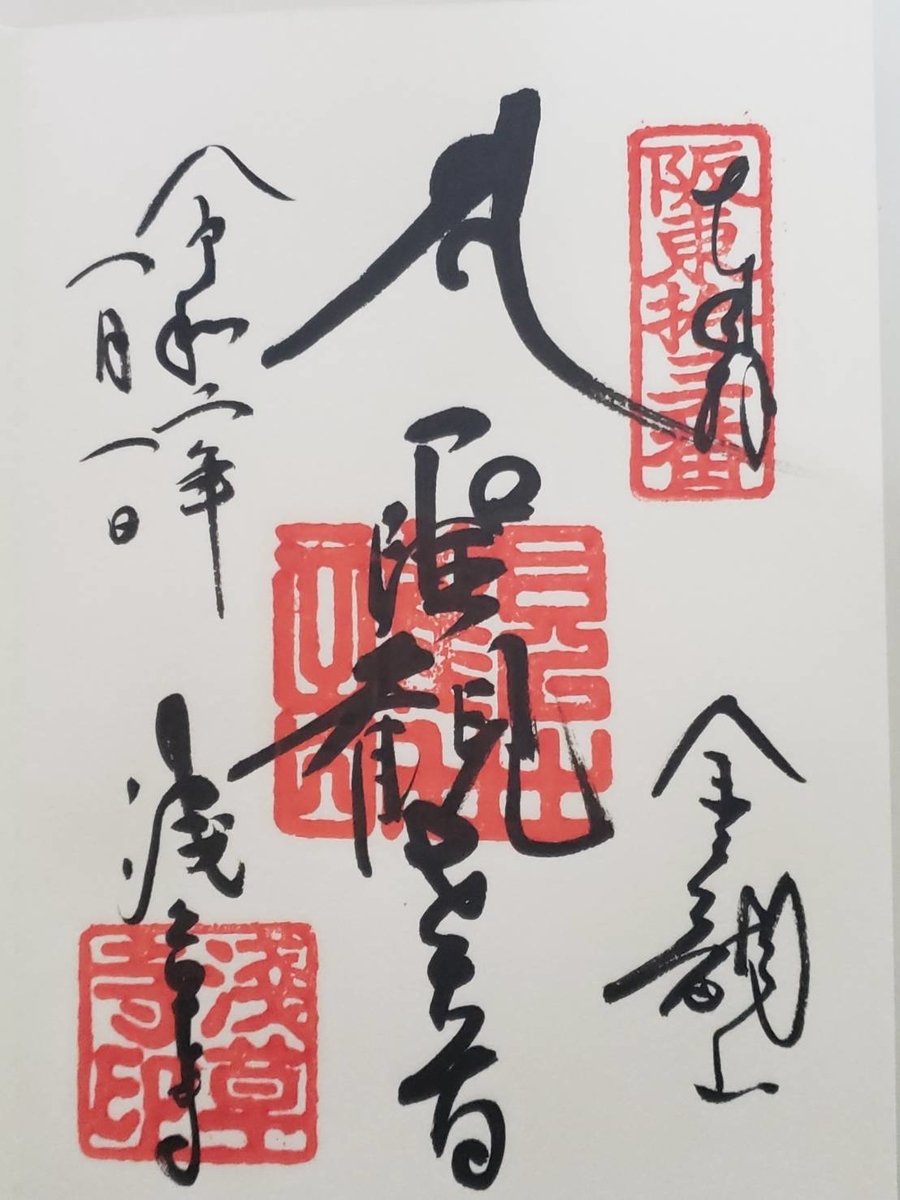 奉拝
阪東拾三番
金龍山
聖観世音
浅草寺
浅草寺印
令和二年
一月一日